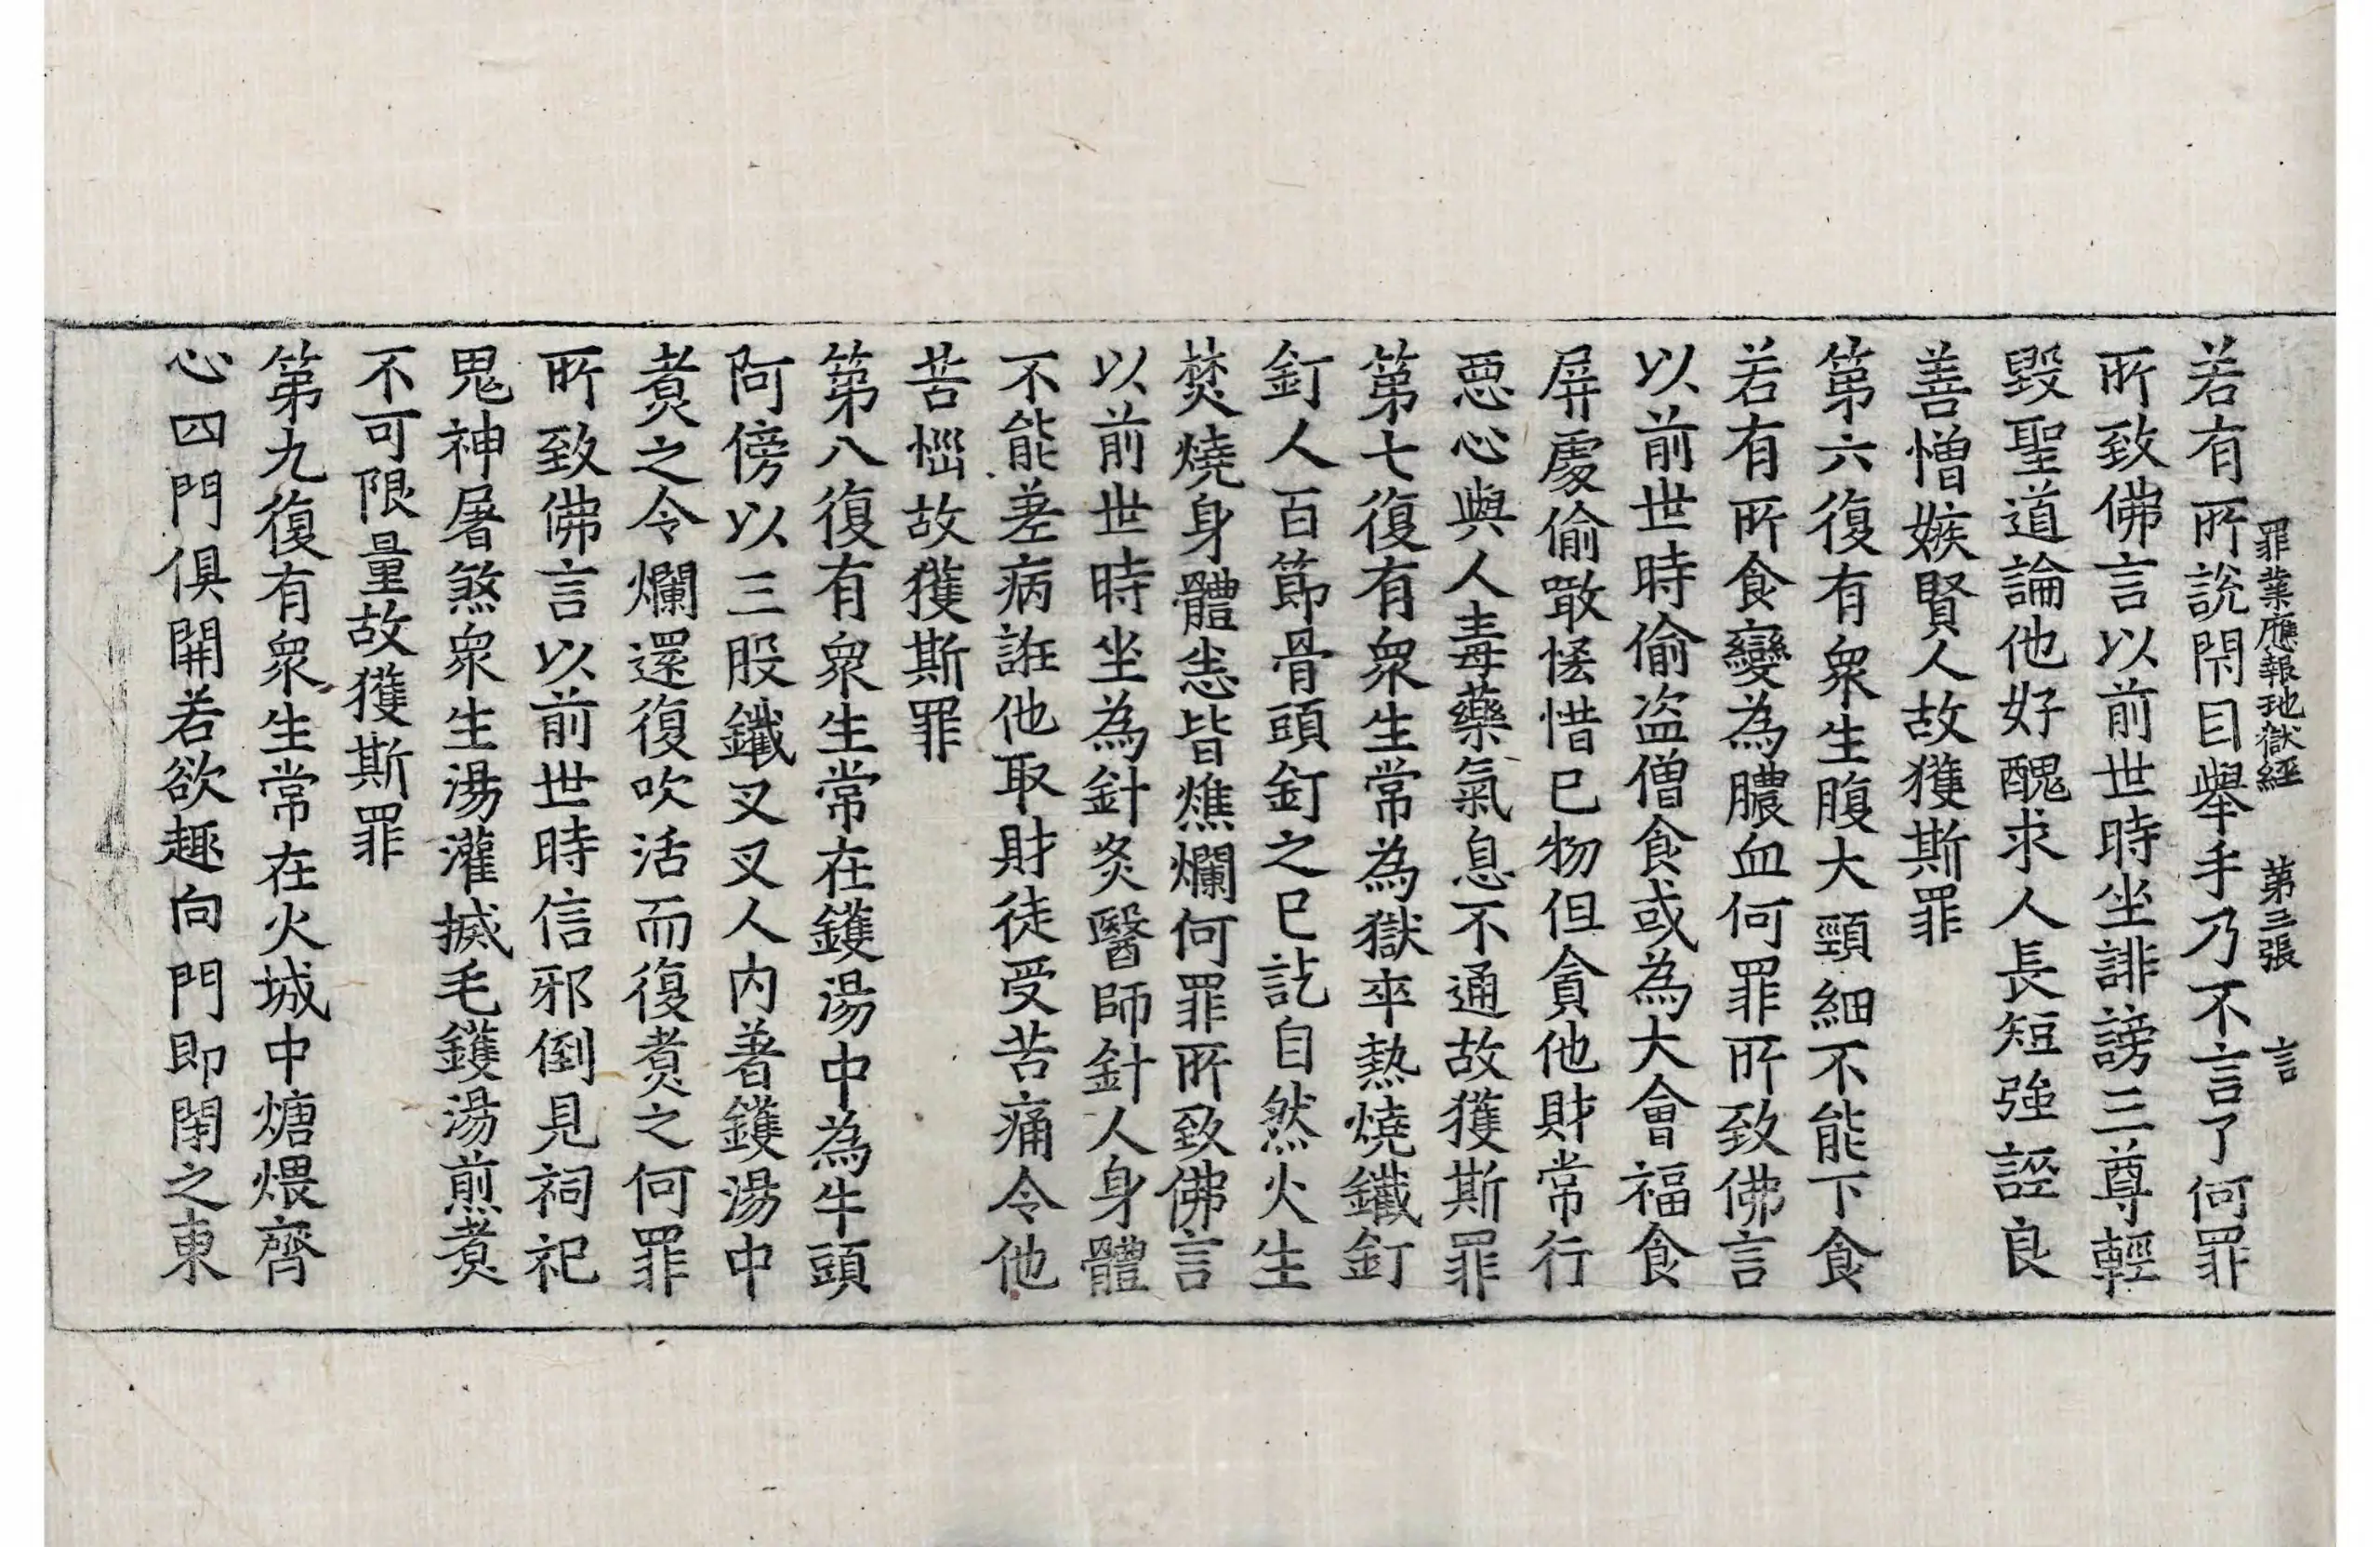 罪業應報地獄經　第三張　言
若有所說閇目舉手乃不言了何罪
所致佛言以前世時坐誹謗三尊輕
毀聖道論他好醜求人長短強誣良
善憎嫉賢人故獲斯罪
第六復有衆生腹大頸細不能下食
若有所食變為膿血何罪所致佛言
以前世時偷盗僧食或為大會福食
屏處偷噉恡惜己物但貪他財常行
惡心與人毒藥氣息不通故獲斯罪
第七復有衆生常為獄卒熱燒鐵釘
釘人百節骨頭釘之已訖自然火生
焚燒身體悉皆燋爛何罪所致佛言
以前世時坐為針灸醫師針人身體
不能差病誑他取財徒受苦痛令他
苦惱故獲斯罪
第八復有衆生常在鑊湯中為牛頭
阿傍以三股鐵叉叉人内著鑊湯中
煮之令爛還復吹活而復煮之何罪
所致佛言以前世時信邪倒見祠祀
鬼神屠煞衆生湯灌搣毛鑊湯煎煮
不可限量故獲斯罪
第九復有衆生常在火城中煻煨齊
心四門俱開若欲趣向門即閇之東